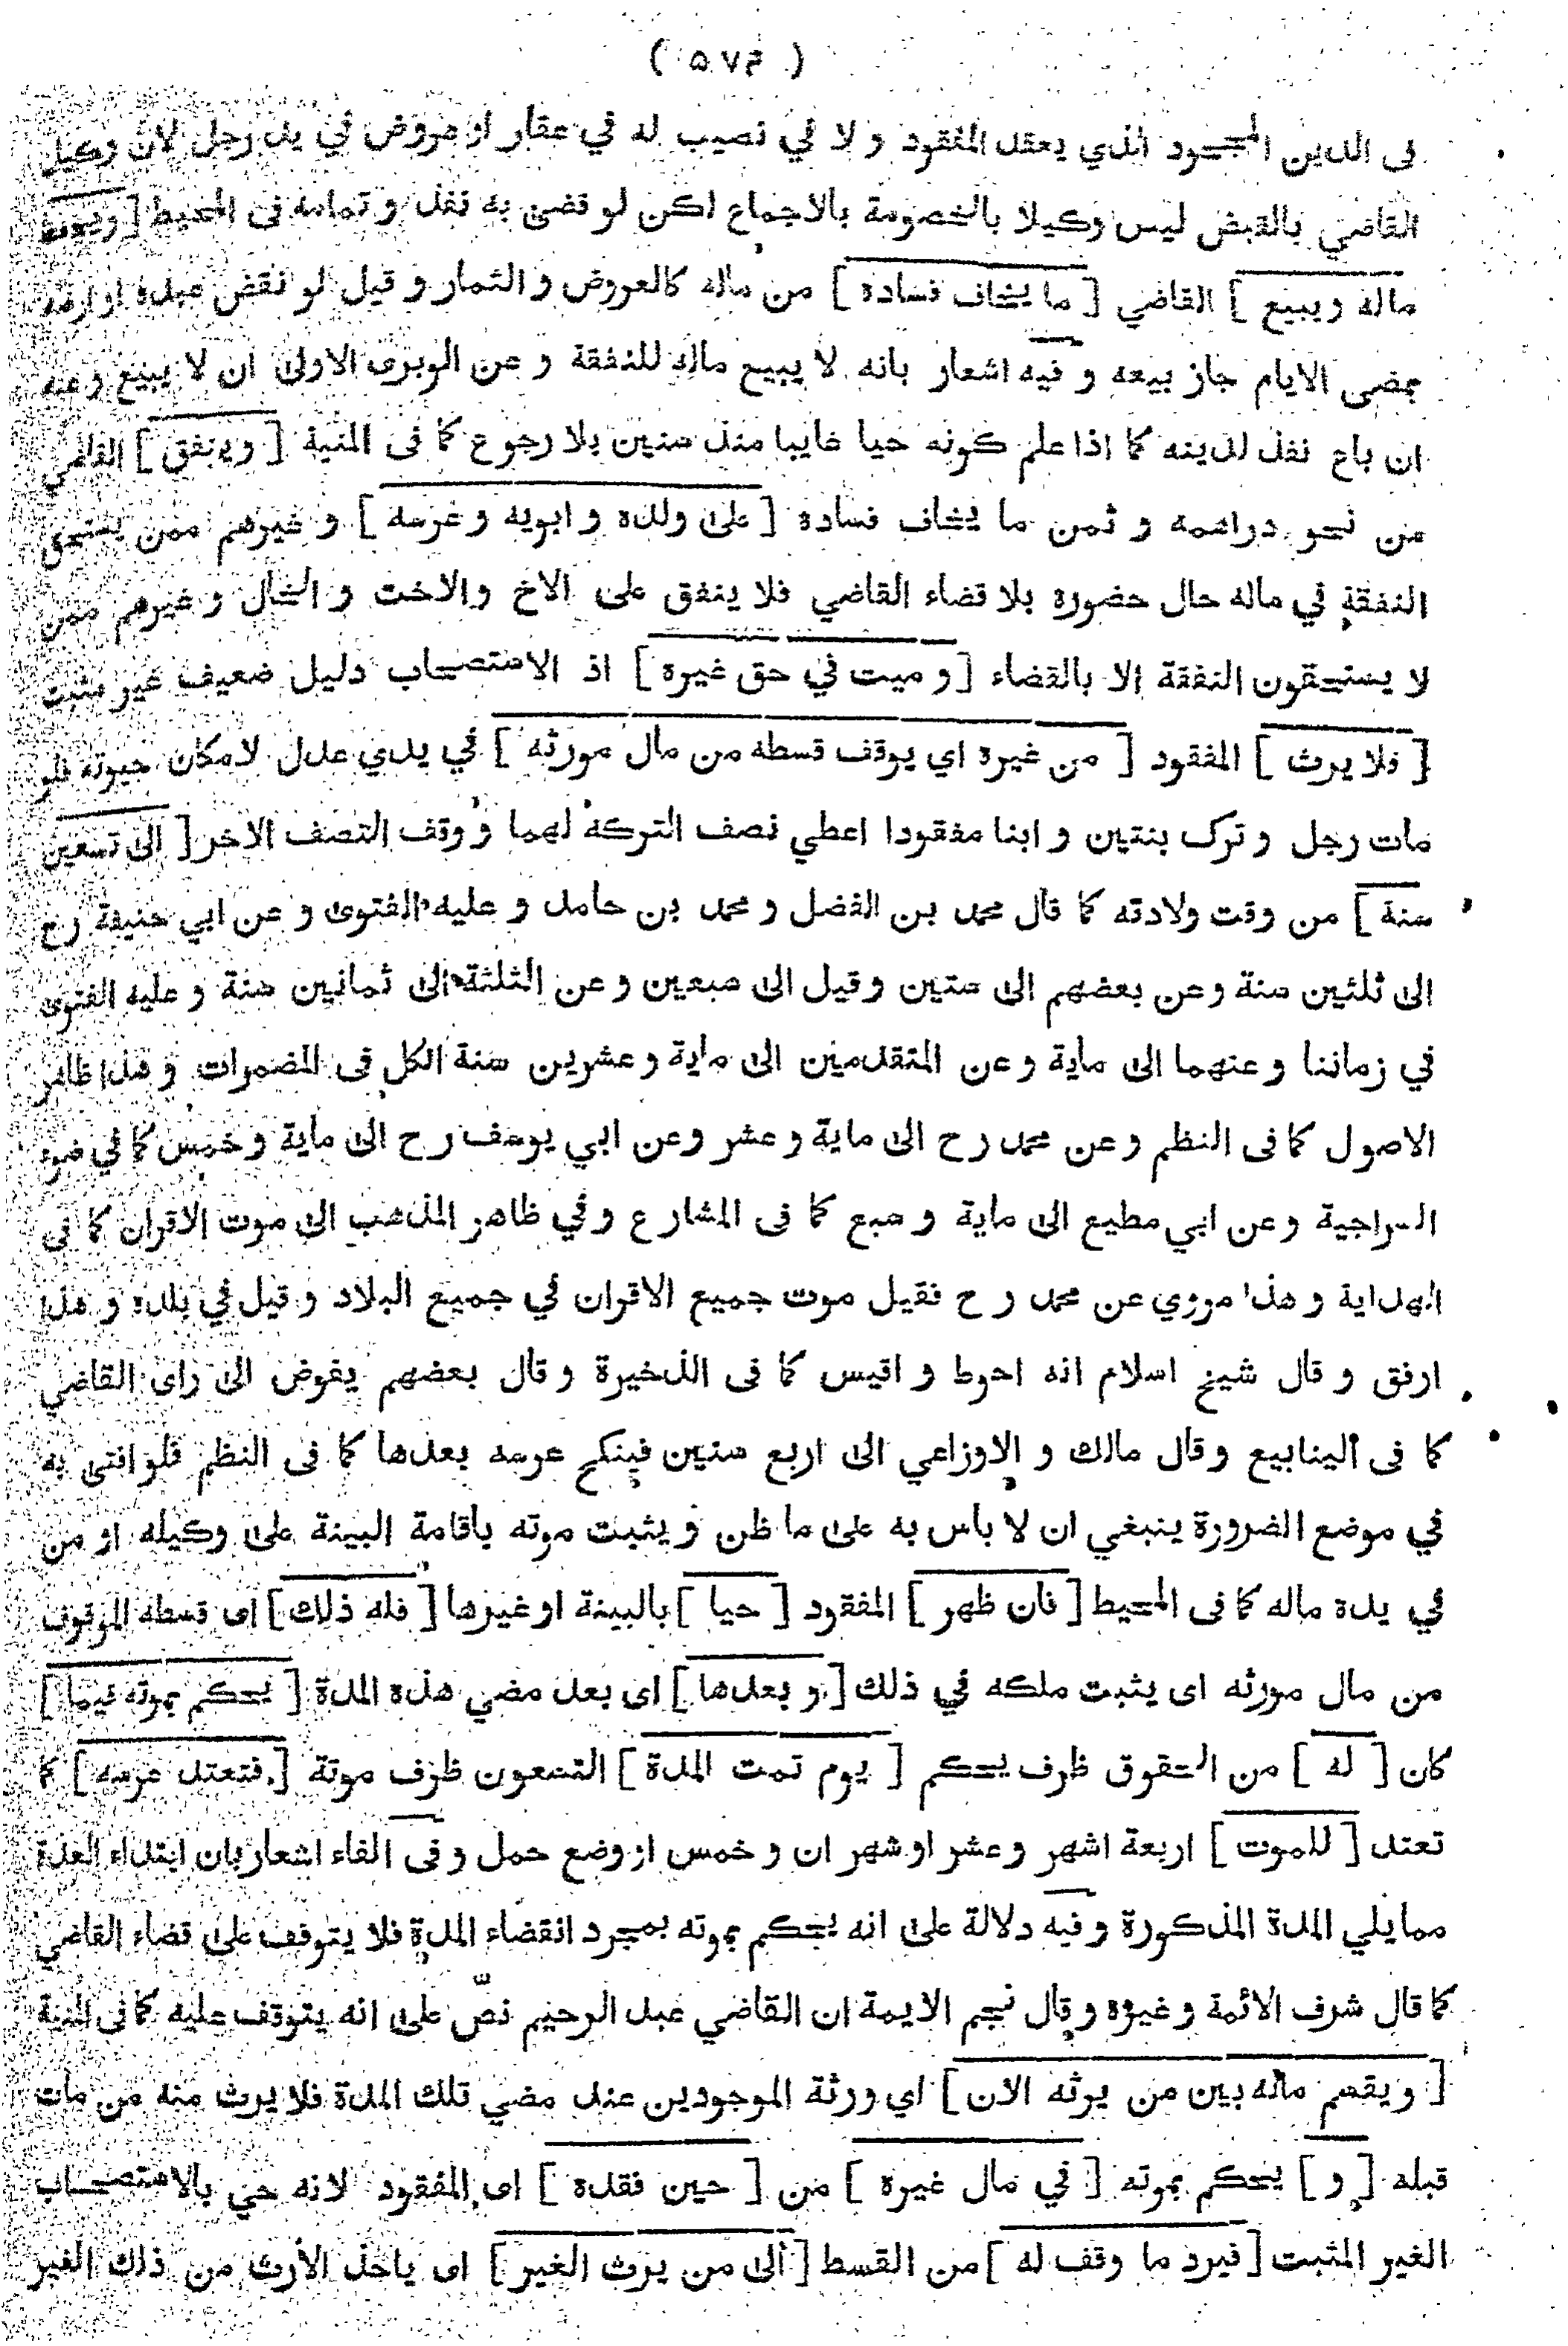 ( ۵۷۴ )
فى الدين المجحود الذي يعقد المفقود و لا في نصيب له في عقار او عروض في يد رجل لان وكيل
القاضي بالقبض ليس وكيلا بالخصومة بالاجماع لكن لو قضى به نفذ و تمامه فى المحيط [
ماله و يبيع ] القاضي [ ما يخاف فساده ] من ماله كالعروض و الثمار و قيل لو نقص عبده او ارضه
بمضى الايام جاز بيعه و فيه اشعار بانه لا يبيع ماله للنفقة و عن الوبرى الاولى ان لا يبيع وعنه
ان باع نفذ لدينه كما اذا علم كونه حيا غايبا منذ سنين بلا رجوع كما فى المنية [ و ينفق ] القاضي
من نحو دراهمه و ثمن ما يخاف فساده [ على ولده و ابويه و عرسه ] و غيرهم ممن يستحق
النفقة في ماله حال حضوره بلا قضاء القاضي فلا ينفق على الاخ والاخت و الخال و غيرهم ممن
لا يستحقون النفقة الا بالقضاء [ و ميت في حق غيره ] اذ الاستصحاب دليل ضعيف غير مثبت
[ فلا يرث ] المفقود [ من غيره اي يوقف قسطه من مال مورثه ] في يدي عدل لامكان حيوته فلو
مات رجل و ترك بنتين و ابنا مفقودا اعطي نصف التركة لهما و وقف النصف الاخر [ الى تسعين
سنة ] من وقت ولادته كما قال محمد بن الفضل و محمد بن حامد و عليه الفتوى و عن ابي حنيفة رح
الى ثلثين سنة وعن بعضهم الى ستين وقيل الى سبعين وعن الثلثة الى ثمانين سنة و عليه الفتوى
في زماننا و عنهما الى ماية و عن المتقدمين الى ماية و عشرين سنة الكل فى المضمرات و هذا ظاهر
الاصول كما فى النظم و عن محمد رح الى ماية و عشر و عن ابي يوسف رح الى ماية و خمس كما في ضوء
السراجية و عن ابي مطيع الى ماية و سبع كما فى المشارع و في ظاهر المذهب الى موت الاقران كما فى
الهداية و هذا مروي عن محمد رح فقيل موت جميع الاقران في جميع البلاد و قيل في بلده و هذا
ارفق و قال شيخ اسلام انه احوط و اقيس كما فى الذخيرة و قال بعضهم يفوض الى راى القاضي
كما فى الينابيع وقال مالك و الاوزاعي الى اربع سنين فينكح عرسه بعدها كما فى النظم فلو افتى به
في موضع الضرورة ينبغي ان لا باس به على ما ظن و يثبت موته باقامة البينة على وكيله او من
في يده ماله كما فى المحيط [ فان ظهر ] المفقود [ حيا ] بالبينة او غيرها [ فله ذلك ] اى قسطه الموقوف
من مال مورثه اى يثبت ملكه في ذلك [ و بعدها ] اى بعد مضي هذه المدة [ يحكم بموته فيما ]
كان [ له ] من الحقوق ظرف يحكم [ يوم تمت المدة ] التسعون ظرف موتة [ فتعتد عرسه ] كما
تعتد [ للموت ] اربعة اشهر وعشر او شهر ان و خمس او وضع حمل و فى الفاء اشعار بان ابتداء العدة
مما يلي المدة المذكورة و فيه دلالة على انه يحكم بموته بمجرد انقضاء المدة فلا يتوقف على قضاء القاضي
كما قال شرف الائمة و غيره و قال نجم الايمة ان القاضي عبد الرحيم نصّ على انه يتوقف عليه كما فى المنية
[ و يقسم ماله بين من يرثه الان ] اي ورثة الموجودين عند مضي تلك المدة فلا يرث منه من مات
قبله [ و ] يحكم بموته [ في مال غيره ] من [ حين فقده ] اى المفقود لانه حي بالاستصحاب
الغير المثبت [ فيرد ما وقف له ] من القسط [ الى من يرث الغير ] اى ياخذ الارث من ذلك الغير